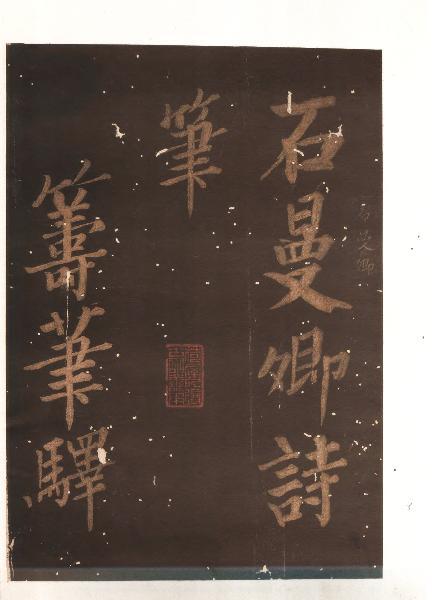 石曼卿詩
石曼卿
筆
籌筆驛